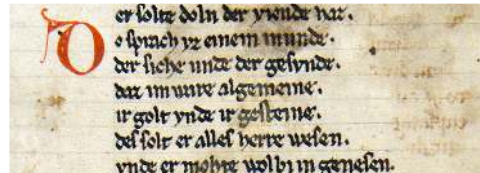 er solte doln der viende haz.
Do sprach vz einem munde.
der siche unde der gesunde.
daz im wære algemeine.
ir golt vnde ir gesteine.
des solt er alles herre wesen.
vnde er mohte wol bi in genesen.